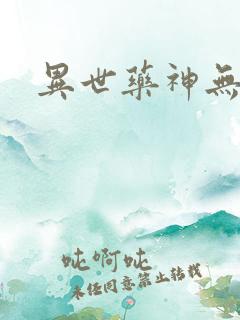 異世藥神無
吨啊吨
未经同意禁止转载